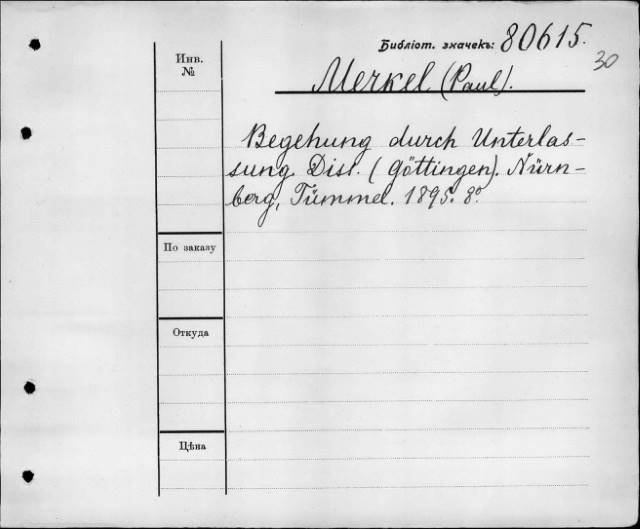 Библіот. значекъ: 80615.
30
Инв.
№
Merkel (Paul).
Begehung durch Unterlas-
sung. Diss. (Göttingen). Nürn-
berg, Tümmel. 1895. 8º
По заказу
Откуда
Цѣна